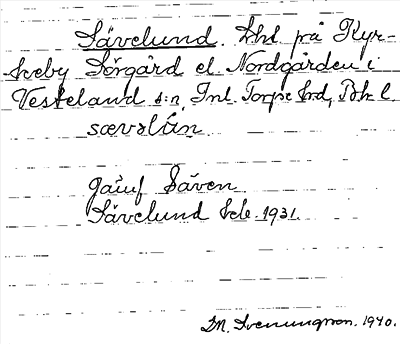 Sävelund. Lht på Kyr-
keby Sörgård el. Nordgården i
Vesteland s:n, Inl. Torpe hd, Boh. l.
sævəlún
jämf Säven
Sävelund kek 1931.
M. Svenungson. 1940.